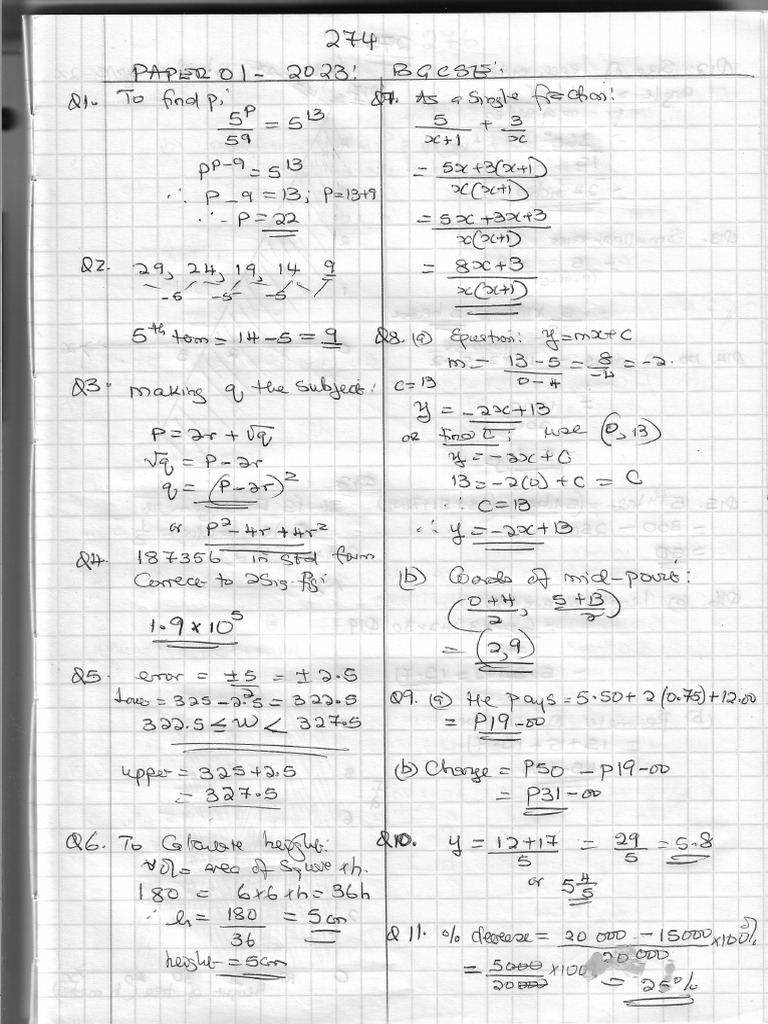 274
PAPER 01 - 2023: BGCSE:
Q1. To find p:
5^p / 5^9 = 5^13
p^p-9 = 5^13
∴ p - 9 = 13; p = 13+9
∴ p = 22
Q2. 29, 24, 19, 14 9
-5 -5 -5
5th term = 14 - 5 = 9
Q3. Making q the subject:
p = 2r + √q
√q = p - 2r
q = (p - 2r)^2
or p^2 - 4r + 4r^2
Q4. 187356 in std form
Correct to 2 sig. fig:
1.9 × 10^5
Q5. error = ± 5/2 = ± 2.5
lower = 325 - 2.5 = 322.5
322.5 ≤ W < 327.5
upper = 325 + 2.5
= 327.5
Q6. To Calculate height:
Vol = area of square × h.
180 = 6 × 6 × h = 36h
∴ h = 180/36 = 5cm
height = 5cm
Q7. As a single fraction:
5/(x+1) + 3/x
= 5x + 3(x+1) / x(x+1)
= 5x + 3x + 3 / x(x+1)
= 8x + 3 / x(x+1)
Q8. (a) Equation: y = mx + c
m = 13 - 5 / 0 - 4 = 8/-4 = -2.
c = 13
y = -2x + 13
or find C: use (0, 13)
y = -2x + C
13 = -2(0) + C = C
∴ C = 13
∴ y = -2x + 13
(b) Coords of mid-point:
(0+4 / 2, 5+13 / 2)
= (2, 9)
Q9. (a) He pays = 5.50 + 2(0.75) + 12.00
= P19-00
(b) Change = P50 - P19-00
= P31-00
Q10. y = 12+17 / 5 = 29/5 = 5.8
or 5 4/5
Q11. % decrease = 20 000 - 15000 / 20 000 × 100%
= 5000/20000 × 100 = 25%